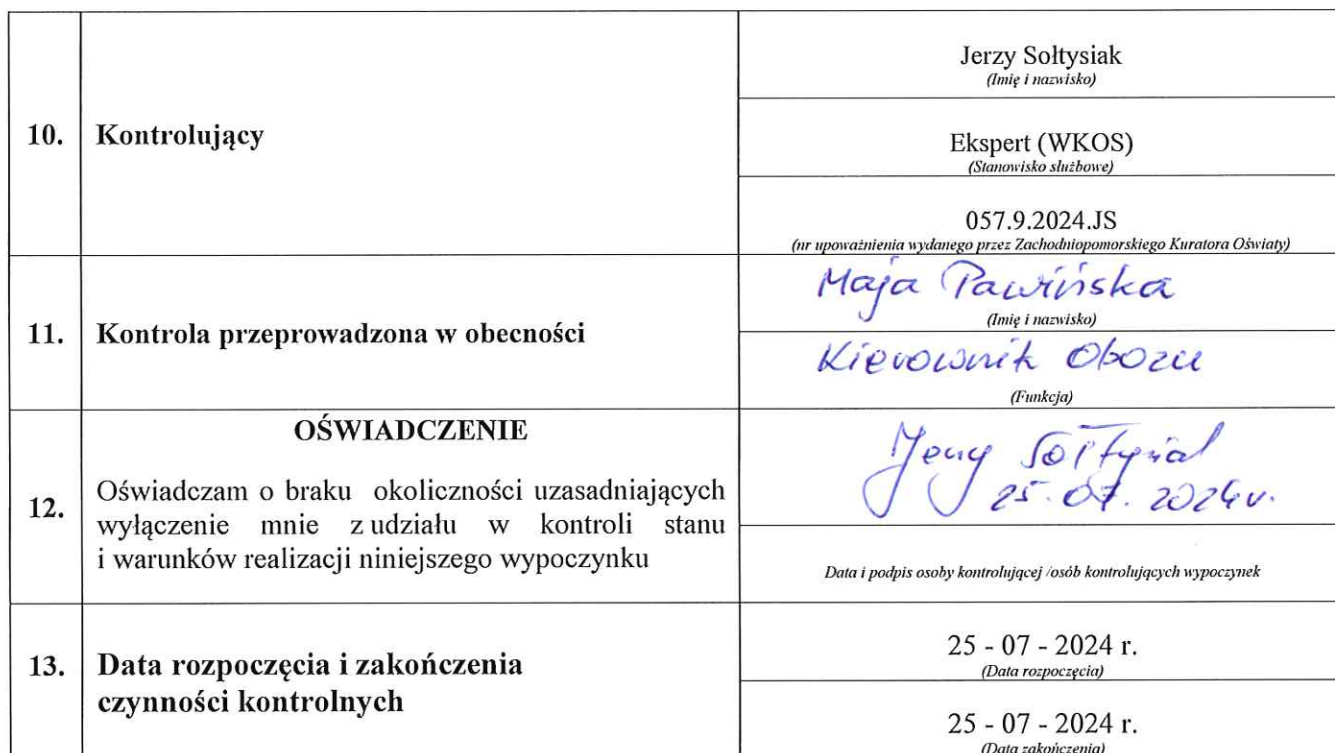 10.
Kontrolujący
Jerzy Sołtysiak
(Imię i nazwisko)
Ekspert (WKOS)
(Stanowisko służbowe)
057.9.2024.JS
(nr upoważnienia wydanego przez Zachodniopomorskiego Kuratora Oświaty)
11.
Kontrola przeprowadzona w obecności
Maja Pawińska
(Imię i nazwisko)
Kierownik Obozu
(Funkcja)
12.
OŚWIADCZENIE
Oświadczam o braku okoliczności uzasadniających
wyłączenie mnie z udziału w kontroli stanu
i warunków realizacji niniejszego wypoczynku
Jerzy Sołtysiak
25.07.2024 r.
Data i podpis osoby kontrolującej /osób kontrolujących wypoczynek
13.
Data rozpoczęcia i zakończenia
czynności kontrolnych
25 - 07 - 2024 r.
(Data rozpoczęcia)
25 - 07 - 2024 r.
(Data zakończenia)